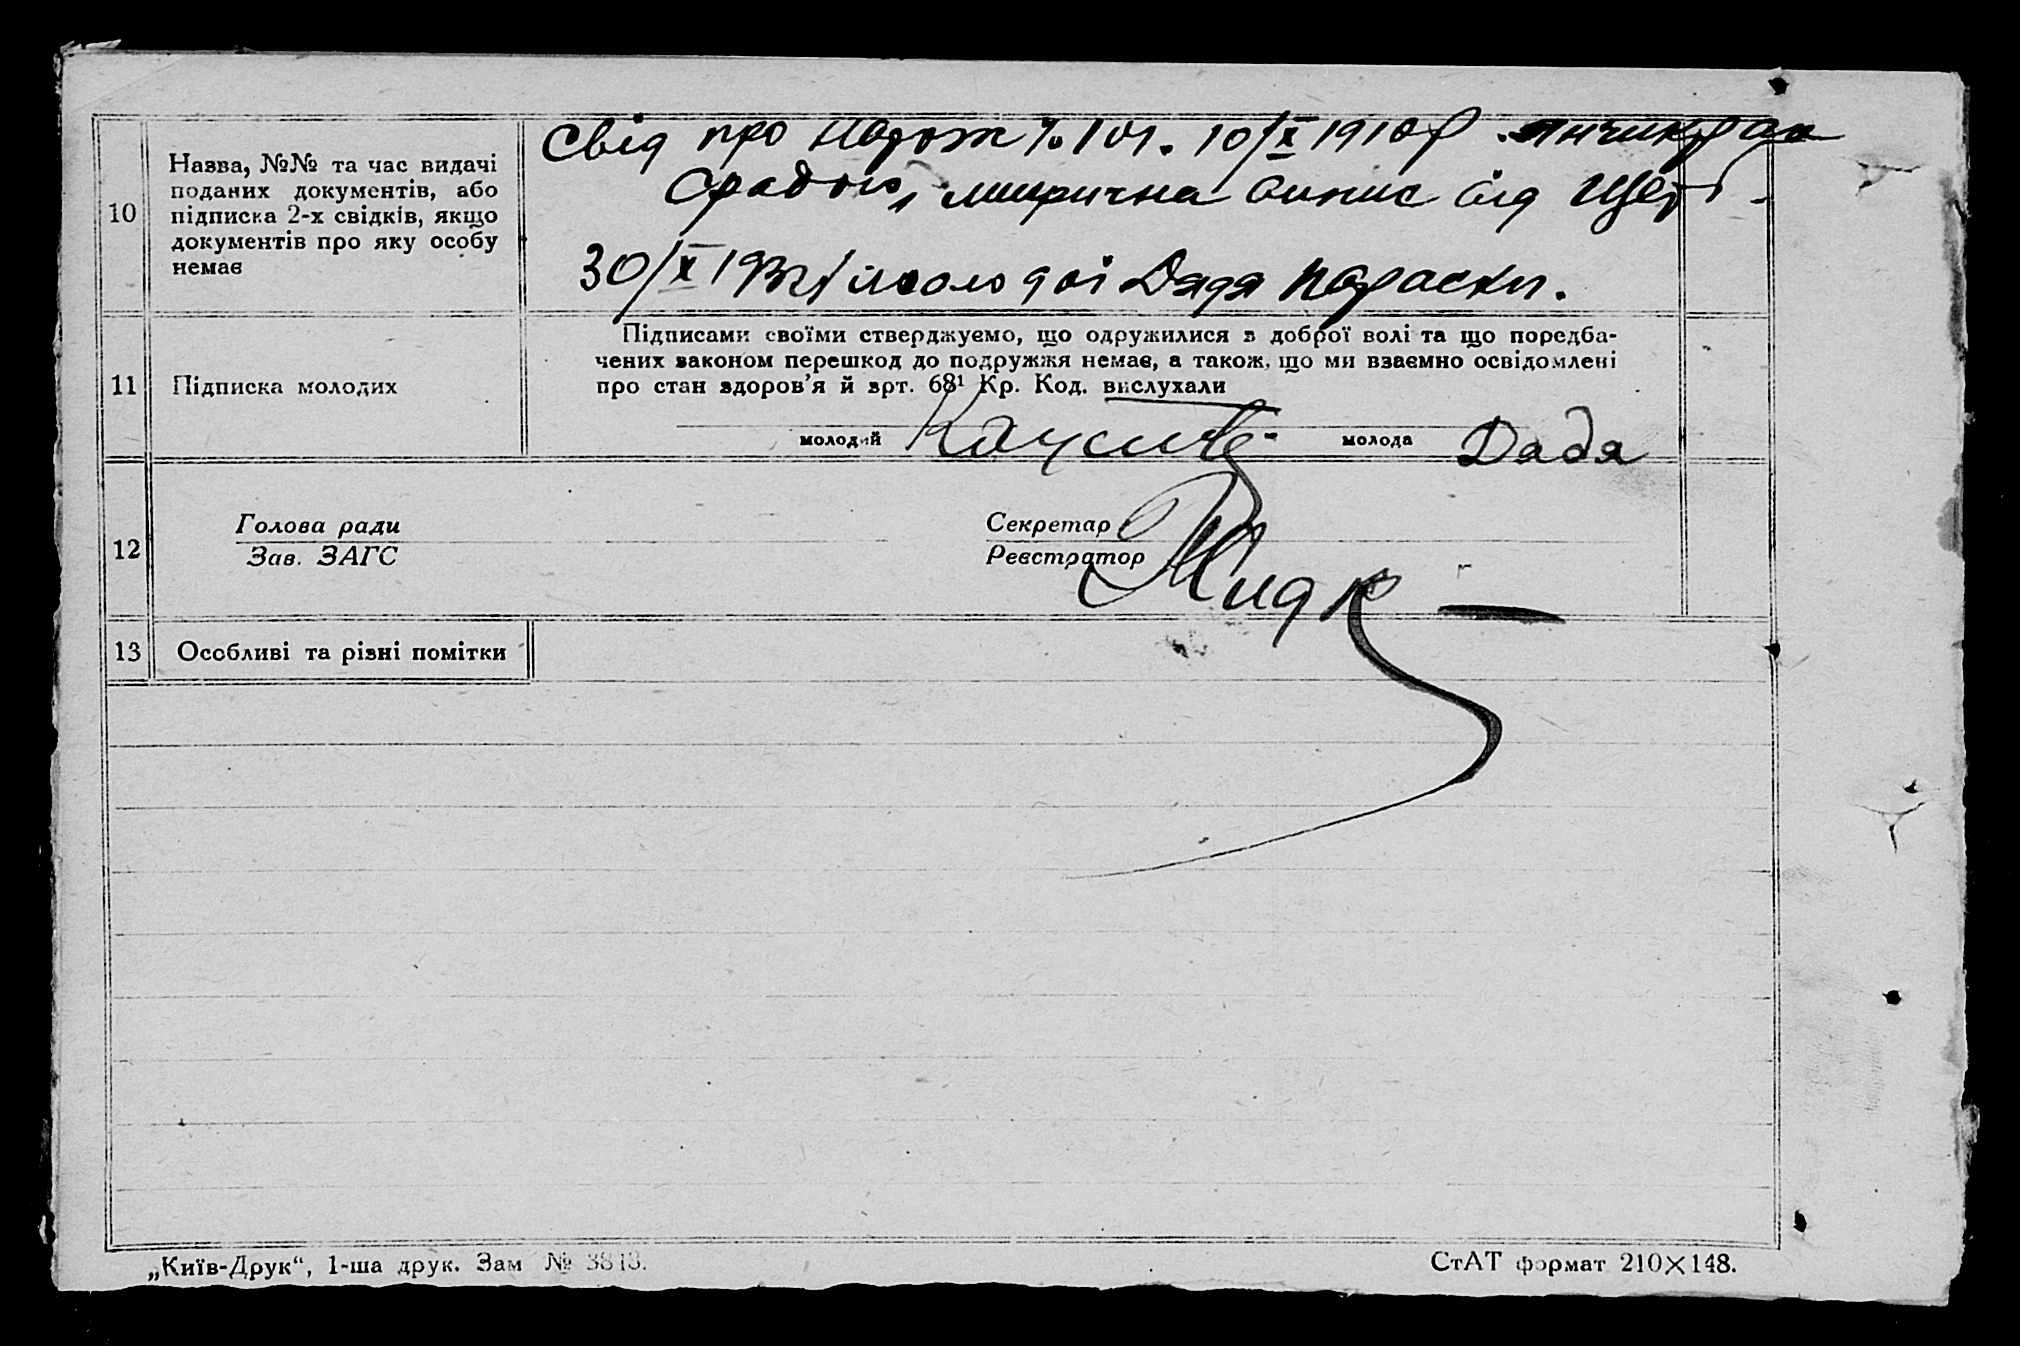 10
Назва, №№ та час видачі
поданих документів, або
підписка 2-х свідків, якщо
документів про яку особу
немає
Свід про народж № 101. 10/X 1910р.
метрична випис від
30/X 193 молодої Дядя Параски.
11
Підписка молодих
Підписами своїми стверджуємо, що одружилися з доброї волі та що поредба-
чених законом перешкод до подружжя немає, а також, що ми взаємно освідомлені
про стан здоров'я й зрт. 68¹ Кр. Код. вислухали
молодий
молода Дядя
12
Голова ради
Зав. ЗАГС
Секретар
Реєстратор
13
Особливі та різні помітки
„Київ-Друк“, 1-ша друк. Зам №
СтАТ формат 210×148.